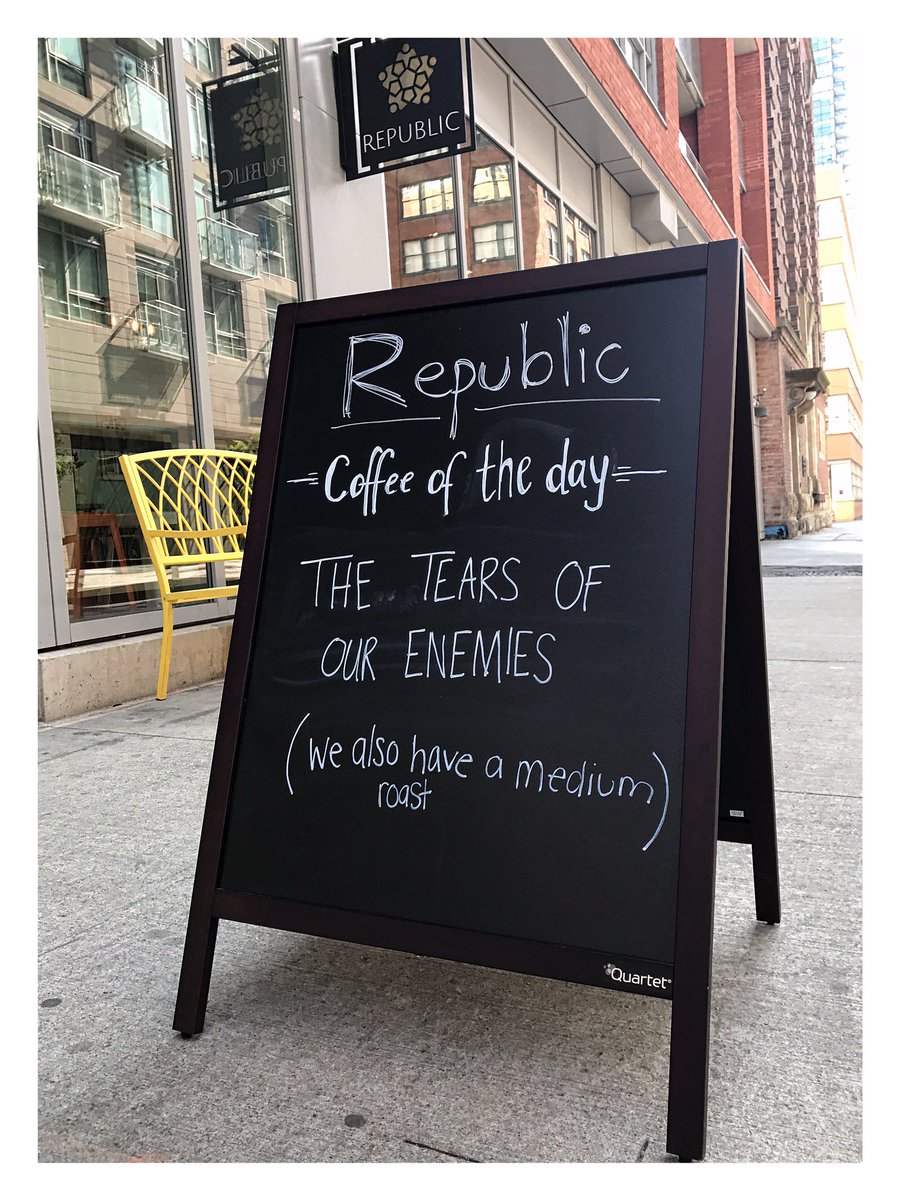 REPUBLIC
REPUBLIC
Republic
Coffee of the day
THE TEARS OF
OUR ENEMIES
(we also have a medium)
roast
Quartet®